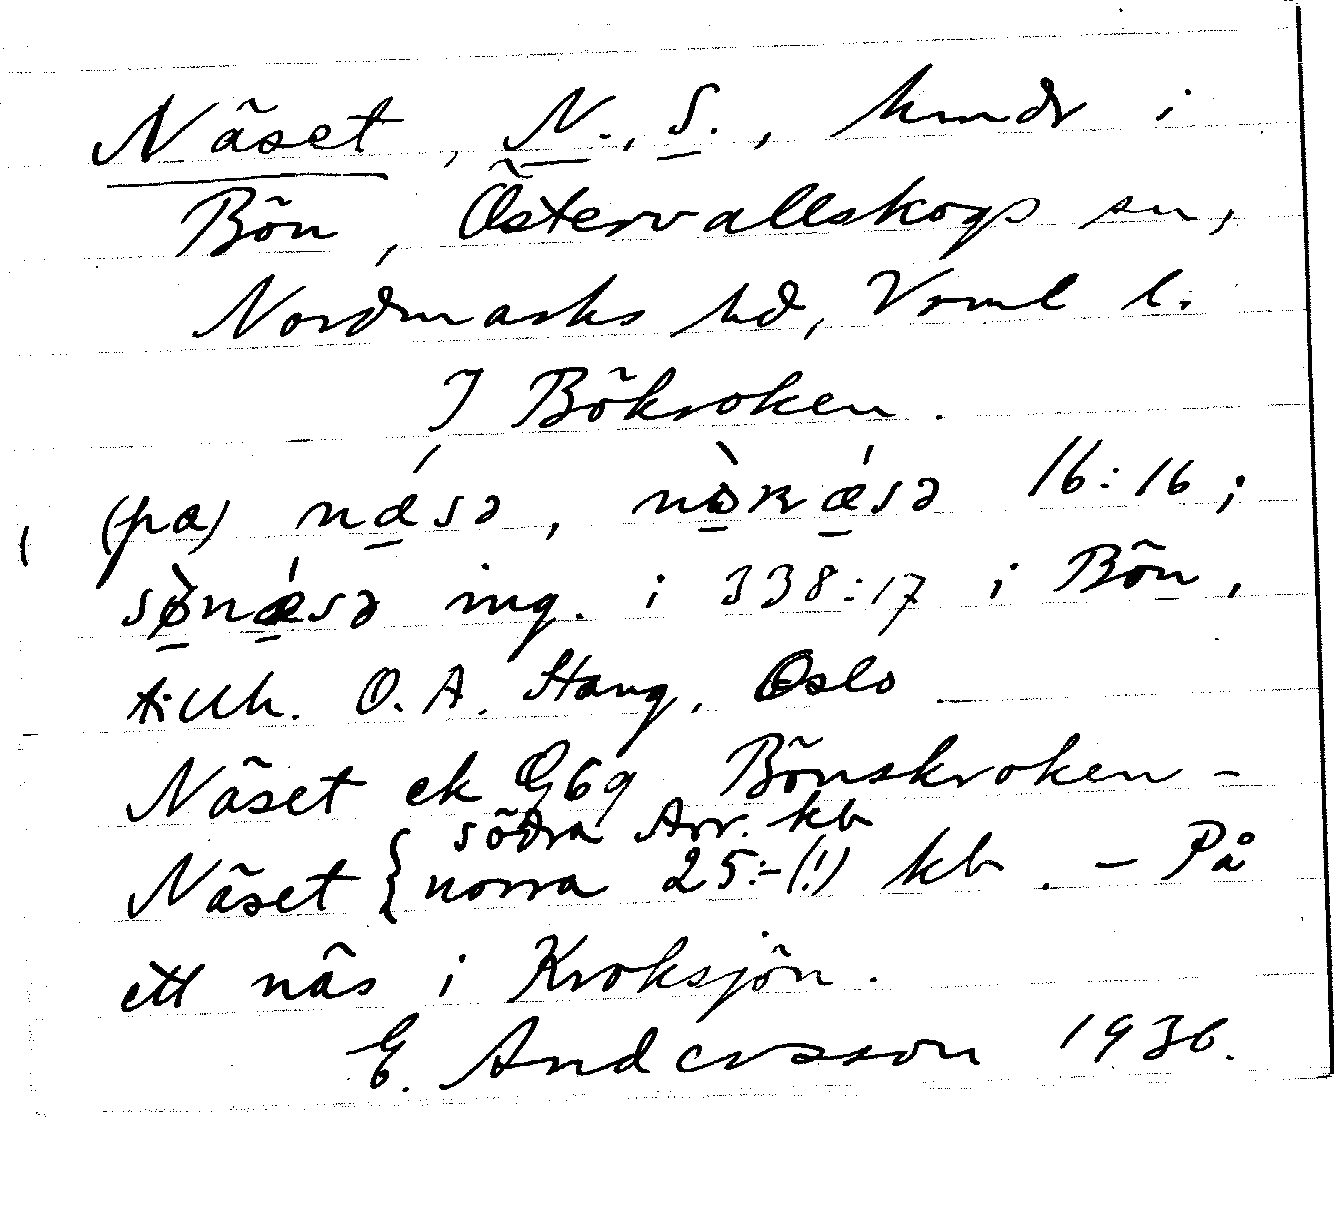 Näset, N., S., hmdr i
Bön, Östervallskogs sn,
Nordmarks hd, Vrml l.
I Bökroken.
(pa) nǽ̱sə, nò̱ʀǽ̱sə 16:16;
sø̱̀nǽ̱sə ing. i 338:17 i Bön,
tillh. O. A. Stang, Oslo
Näset ek G69 Bönskroken –
Näset { södra Arr. kb
norra 25:-(!) kb. – På
ett näs i Kroksjön.
E. Andersson 1936.